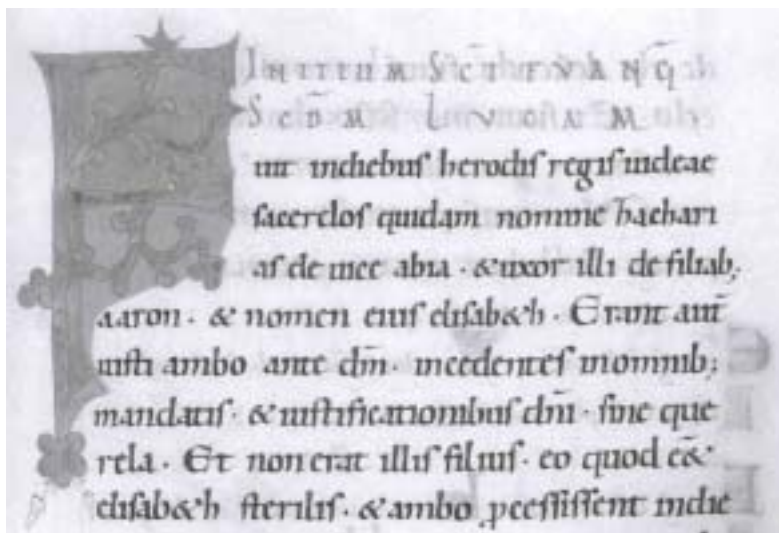 INITIUM SCI EVANG
SCDM LUCAM
Fuit indiebus herodis regis iudeae
sacerdos quidam nomine zachari
as de uice abia · & uxor illi de filiab;
aaron · & nomen eius elisab&h · Erant aut̄
iusti ambo ante dm̄ · incedentes inomnib;
mandatis · & iustificationibus dn̄i · sine que
rela · Et non erat illis filius · eo quod ēē&
elisab&h sterilis · & ambo pcessissent indie